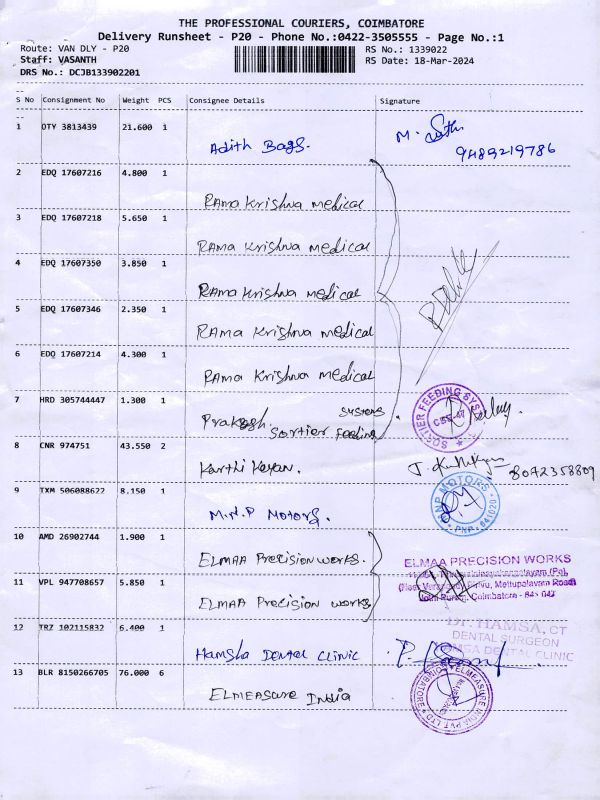 THE PROFESSIONAL COURIERS, COIMBATORE
Delivery Runsheet - P20 - Phone No.:0422-3505555 - Page No.:1
Route: VAN DLY - P20
RS No.: 1339022
Staff: VASANTH
RS Date: 18-Mar-2024
DRS No.: DCJB133902201
S No Consignment No Weight PCS Consignee Details Signature
1 OTY 3813439 21.600 1
Adith Bags.
9489219786
2 EDQ 17607216 4.800 1
RAma Krishna medical
3 EDQ 17607218 5.650 1
RAma Krishna medical
4 EDQ 17607350 3.850 1
RAma Krishna medical
5 EDQ 17607346 2.350 1
RAma Krishna medical
6 EDQ 17607214 4.300 1
RAma Krishna medical
7 HRD 305744447 1.300 1
Prakash Sortier feeding systems.
SORTIER FEEDING SYS
8 CNR 974751 43.550 2
Karthi Keyan.
8072358809
9 TXM 506088622 8.150 1
M.N.P Motors.
PNP MOTORS
PNP - 641020
10 AMD 26902744 1.900 1
ELMAA Precision works.
ELMAA PRECISION WORKS
11 VPL 947708657 5.850 1
ELMAA Precision works
Mettupalayam Road)
Coimbatore - 641 047
12 TRZ 102115832 6.400 1
Hamsha Dental clinic
Dr. HAMSA, CT
DENTAL SURGEON
HAMSA DENTAL CLINIC
13 BLR 8150266705 76.000 6
ELMEASURE India
ELMEASURE INDIA PVT LTD
COIMBATORE